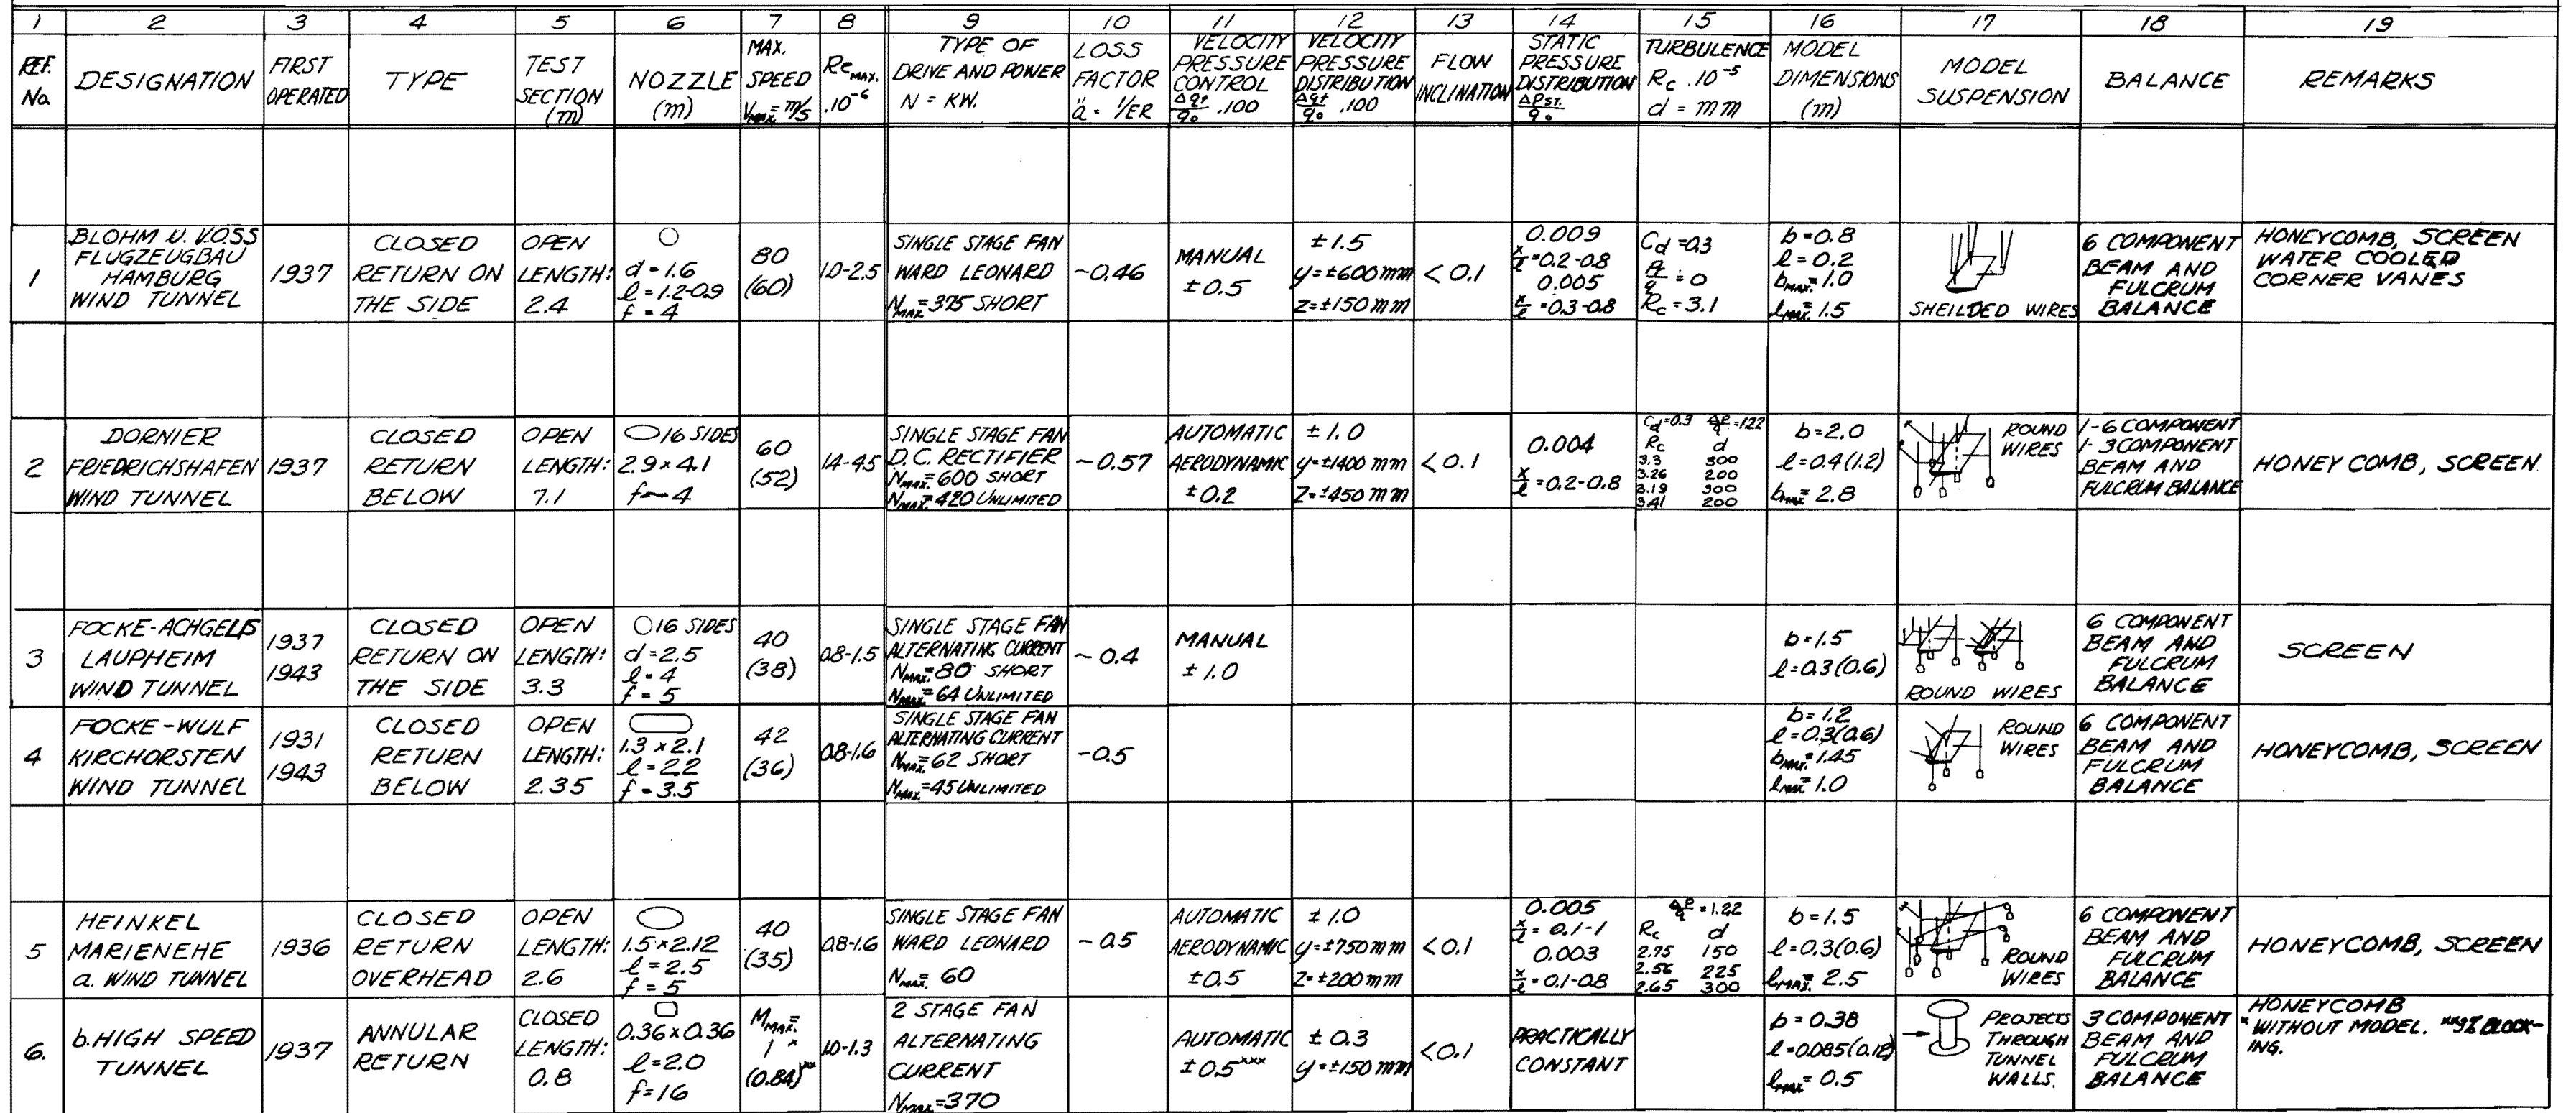 1
2
3
4
5
6
7
8
9
10
11
12
13
14
15
16
17
18
19
REF.
No.
DESIGNATION
FIRST
OPERATED
TYPE
TEST
SECTION
(m)
NOZZLE
(m)
MAX.
SPEED
VMAX. = m/s
Re MAX.
.10⁻⁶
TYPE OF
DRIVE AND POWER
N = KW.
LOSS
FACTOR
ä = 1/ER
VELOCITY
PRESSURE
CONTROL
Δqt/q₀ .100
VELOCITY
PRESSURE
DISTRIBUTION
Δqt/q₀ .100
FLOW
INCLINATION
STATIC
PRESSURE
DISTRIBUTION
ΔPST./q₀
TURBULENCE
Rc .10⁻⁵
d = mm
MODEL
DIMENSIONS
(m)
MODEL
SUSPENSION
BALANCE
REMARKS
1
BLOHM U. VOSS
FLUGZEUGBAU
HAMBURG
WIND TUNNEL
1937
CLOSED
RETURN ON
THE SIDE
OPEN
LENGTH:
2.4
d = 1.6
l = 1.2-0.9
f = 4
80
(60)
1.0-2.5
SINGLE STAGE FAN
WARD LEONARD
NMAX. = 375 SHORT
~0.46
MANUAL
±0.5
±1.5
y=±600mm
z=±150mm
<0.1
0.009
x/l=0.2-0.8
0.005
x/l=0.3-0.8
Cd=0.3
=0
Rc=3.1
b=0.8
l=0.2
bMAX.=1.0
lMAX.=1.5
SHEILDED WIRES
6 COMPONENT
BEAM AND
FULCRUM
BALANCE
HONEYCOMB, SCREEN
WATER COOLED
CORNER VANES
2
DORNIER
FRIEDRICHSHAFEN
WIND TUNNEL
1937
CLOSED
RETURN
BELOW
OPEN
LENGTH:
7.1
16 SIDES
2.9×4.1
f~4
60
(52)
1.4-4.5
SINGLE STAGE FAN
D.C. RECTIFIER
NMAX.=600 SHORT
NMAX.=420 UNLIMITED
~0.57
AUTOMATIC
AERODYNAMIC
±0.2
±1.0
y=±1400mm
z=±450mm
<0.1
0.004
x/l=0.2-0.8
Cd=0.3 Δp/q=1.22
Rc d
3.3 300
3.26 200
3.19 300
3.41 200
b=2.0
l=0.4(1.2)
bMAX.=2.8
ROUND
WIRES
1-6 COMPONENT
1-3 COMPONENT
BEAM AND
FULCRUM BALANCE
HONEY COMB, SCREEN
3
FOCKE-ACHGELIS
LAUPHEIM
WIND TUNNEL
1937
1943
CLOSED
RETURN ON
THE SIDE
OPEN
LENGTH:
3.3
16 SIDES
d=2.5
l=4
f=5
40
(38)
0.8-1.5
SINGLE STAGE FAN
ALTERNATING CURRENT
NMAX.=80 SHORT
NMAX.=64 UNLIMITED
~0.4
MANUAL
±1.0
b=1.5
l=0.3(0.6)
ROUND WIRES
6 COMPONENT
BEAM AND
FULCRUM
BALANCE
SCREEN
4
FOCKE-WULF
KIRCHORSTEN
WIND TUNNEL
1931
1943
CLOSED
RETURN
BELOW
OPEN
LENGTH:
2.35
1.3×2.1
l=2.2
f=3.5
42
(36)
0.8-1.6
SINGLE STAGE FAN
ALTERNATING CURRENT
NMAX.=62 SHORT
NMAX.=45 UNLIMITED
~0.5
b=1.2
l=0.3(0.6)
bMAX.=1.45
lMAX.=1.0
ROUND
WIRES
6 COMPONENT
BEAM AND
FULCRUM
BALANCE
HONEYCOMB, SCREEN
5
HEINKEL
MARIENEHE
a. WIND TUNNEL
1936
CLOSED
RETURN
OVERHEAD
OPEN
LENGTH:
2.6
1.5×2.12
l=2.5
f=5
40
(35)
0.8-1.6
SINGLE STAGE FAN
WARD LEONARD
NMAX.=60
~0.5
AUTOMATIC
AERODYNAMIC
±0.5
±1.0
y=±750mm
z=±200mm
<0.1
0.005
x/l=0.1-1
0.003
x/l=0.1-0.8
Δp/q=1.22
Rc d
2.75 150
2.56 225
2.65 300
b=1.5
l=0.3(0.6)
lMAX.=2.5
ROUND
WIRES
6 COMPONENT
BEAM AND
FULCRUM
BALANCE
HONEYCOMB, SCREEN
6.
b. HIGH SPEED
TUNNEL
1937
ANNULAR
RETURN
CLOSED
LENGTH:
0.8
0.36×0.36
l=2.0
f=16
MMAX.=
1 ˣ
(0.84)ˣˣ
1.0-1.3
2 STAGE FAN
ALTERNATING
CURRENT
NMAX.=370
AUTOMATIC
±0.5ˣˣˣ
±0.3
y=±150mm
<0.1
PRACTICALLY
CONSTANT
b=0.38
l=0.085(0.12)
lMAX=0.5
PROJECTS
THROUGH
TUNNEL
WALLS.
3 COMPONENT
BEAM AND
FULCRUM
BALANCE
HONEYCOMB
ˣ WITHOUT MODEL. ˣˣ9% BLOCK-
ING.